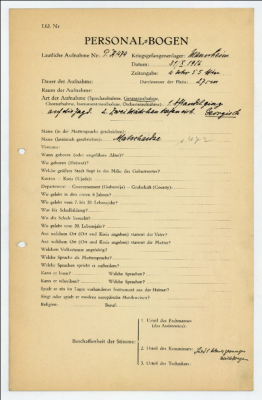 Lfd. Nr.
PERSONAL-BOGEN
Lautliche Aufnahme Nr. P. K 474 Kriegsgefangenenlager:
Datum: 31/8 1916
Zeitangabe: 4 Uhr 55 Min
Dauer der Aufnahme: Durchmesser der Platte: 27 cm
Raum der Aufnahme:
Art der Aufnahme (Sprechaufnahme, Gesangsaufnahme,
Choraufnahme, Instrumentenaufnahme, Orchesteraufnahme):
2. Zwei Mädchen Georgisch
Name (in der Muttersprache geschrieben):
Name (lateinisch geschrieben):
Vorname:
Wann geboren (oder ungefähres Alter)?
Wo geboren (Heimat)?
Welche größere Stadt liegt in der Nähe des Geburtsortes?
Kanton – Kreis (Ujezd):
Department – Gouvernement (Gubernija) – Grafschaft (County):
Wo gelebt in den ersten 6 Jahren?
Wo gelebt vom 7. bis 20. Lebensjahr?
Was für Schulbildung?
Wo die Schule besucht?
Wo gelebt vom 20. Lebensjahr?
Aus welchem Ort (Ort und Kreis angeben) stammt der Vater?
Aus welchem Ort (Ort und Kreis angeben) stammt die Mutter?
Welchem Volksstamm angehörig?
Welche Sprache als Muttersprache?
Welche Sprachen spricht er außerdem?
Kann er lesen? Welche Sprachen?
Kann er schreiben? Welche Sprachen?
Spielt er ein im Lager vorhandenes Instrument aus der Heimat?
Singt oder spielt er modern europäische Musikweisen?
Religion: Beruf:
1. Urteil des Fachmannes
(des Assistenten):
Beschaffenheit der Stimme:
2. Urteil des Kommissars:
3. Urteil des Technikers: